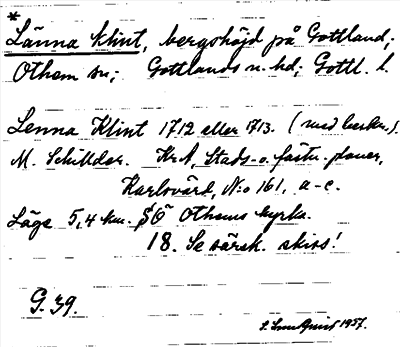 *
Länna klint, bergshöjd på Gottland;
Othem sn; Gottlands n. hd; Gottl. l.
Lenna Klint 1712 eller 1713. (med beskr.).
M. Schillder. KrA, Stads- o. fästn. planer,
Karlsvärd, N:o 161, a-c.
Läge 5,4 km. SÖ Othems kyrka.
18. Se särsk. skiss!
G. 39.
1957.